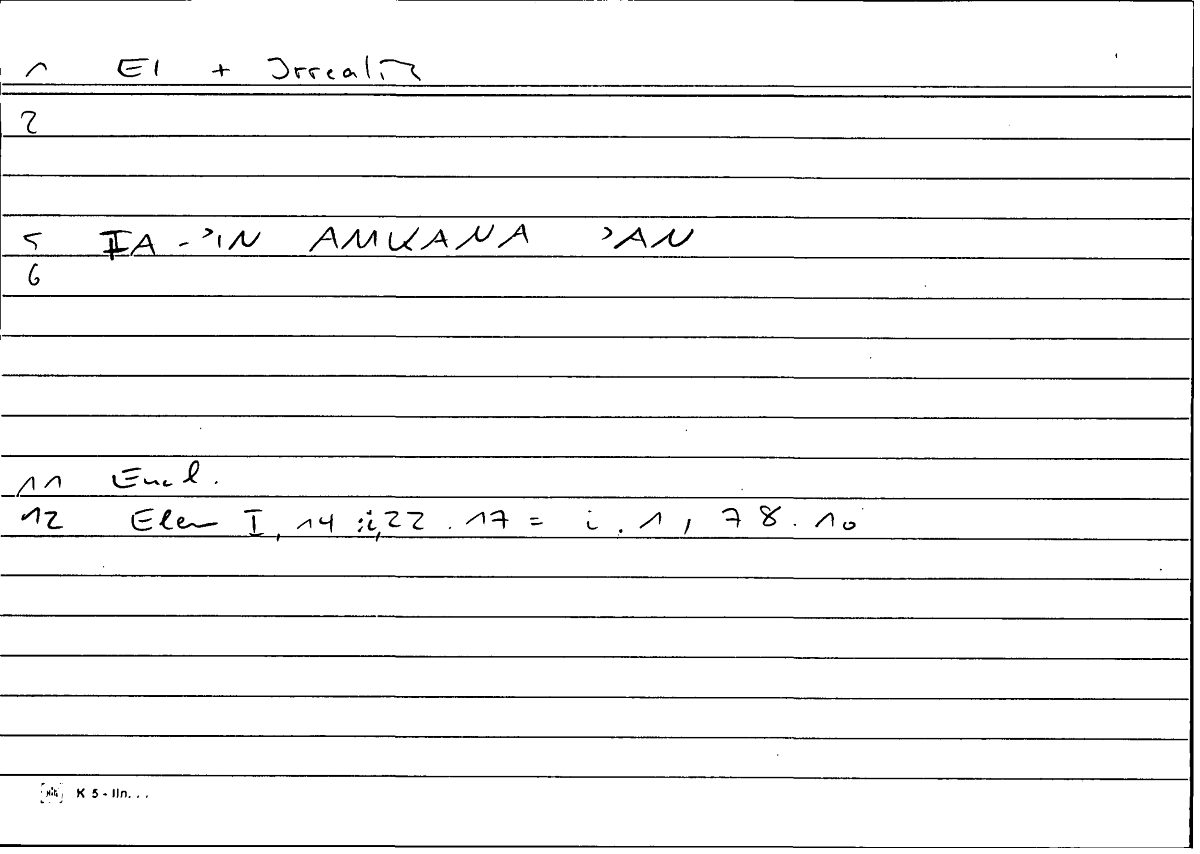 1 EI + Irrealis
2
5 IA - ʾIN AMKANA ʾAN
6
11 Eucl.
12 Elem I, 14 : i, 22 . 17 = i . 1 , 78 . 10
K 5 - lin. . .